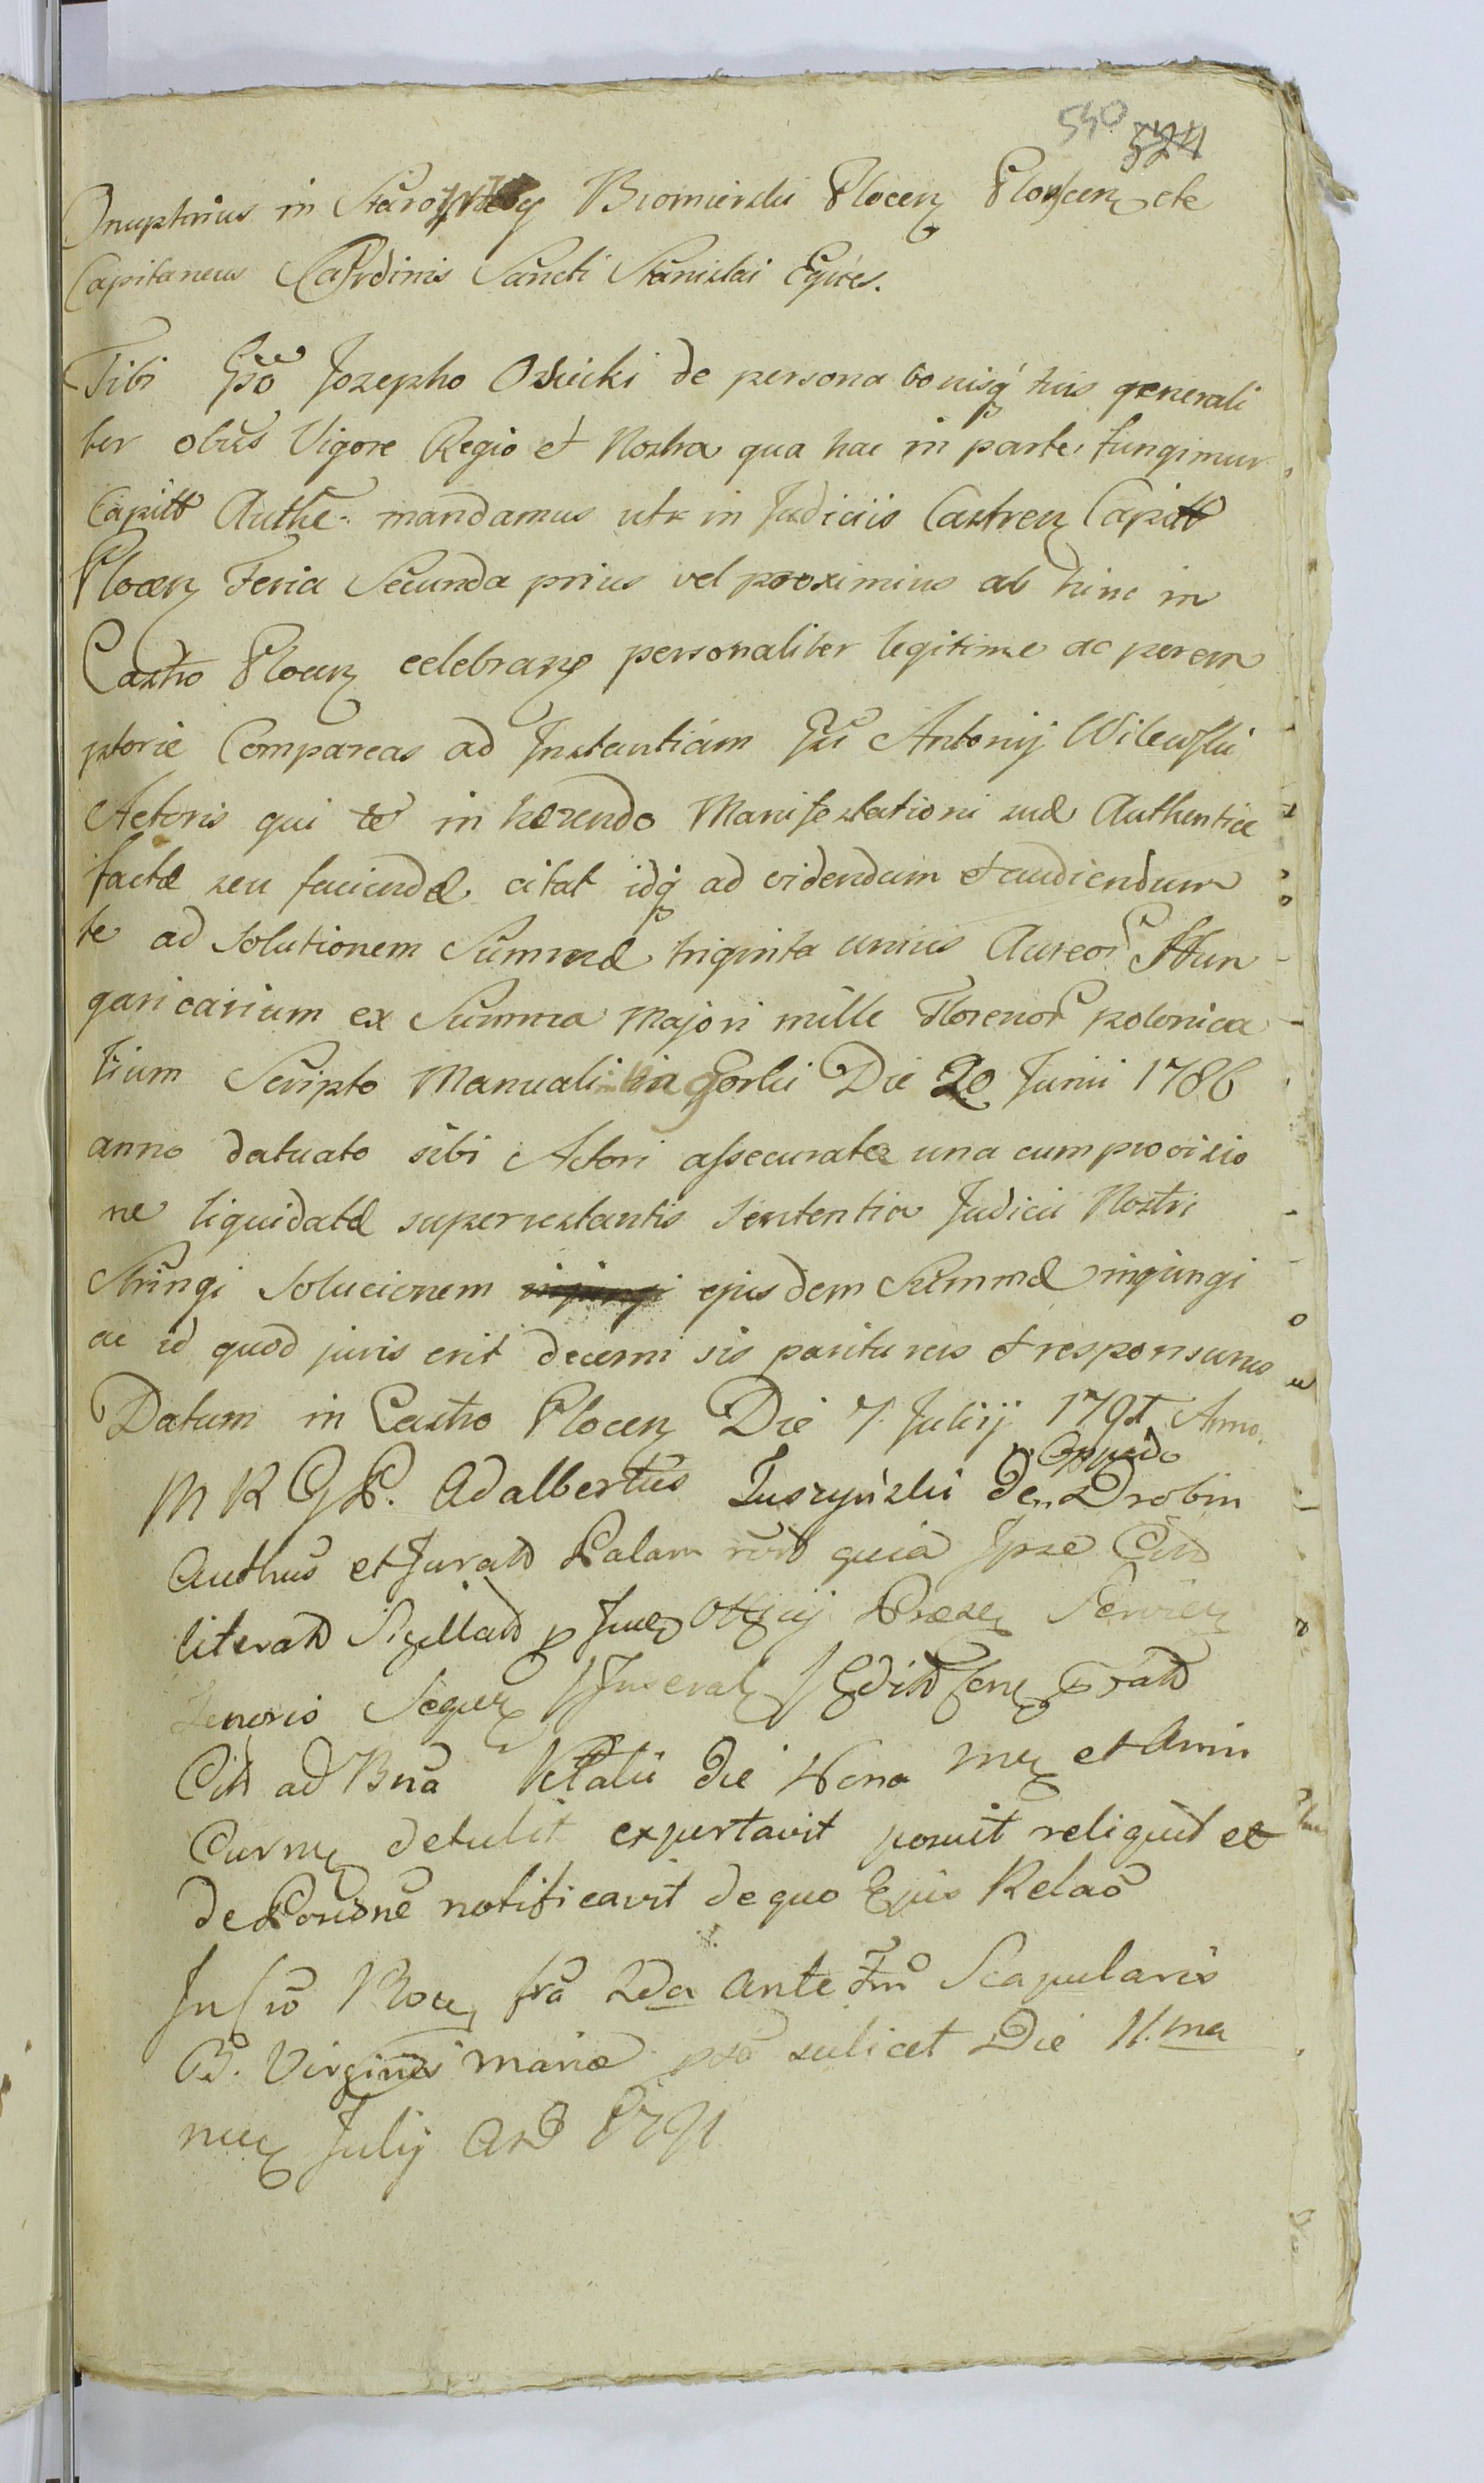 540 524
Onuphrius in Bromierski Plocen Plonscen etc
Capitaneus Ordinis Sancti Stanislai Eques.
Tibi Gso Jozepho Osiecki de persona bonisq tuis generali
ter obus Vigore Regio et Nostra qua hac in parte fungimur
Capitt Authe. mandamus utr in Judiciis Castren Capitt
Plocen Feria Secunda prius vel proximius ab hinc in
Castro Plocen celebran personaliter legitime ac perem
ptorie Compareas ad Instantiam Gsi Antonij Wilewski
Actoris qui te in hærendo Manifestationi suæ Authentice
factæ seu faciendæ citat idq ad videndum et audiendum
te ad Solutionem Summæ triginta unius Aureor Hun
garicarium ex Summa Majori mille Florenor polonica
lium Scripto Manuali in Gorki Die 20 Junii 1786
anno datuato sibi Actori assecuratæ una cum provisio
ne liquidatæ superrestantis Sententia Judicii Nostri
Stringi Solucionem injungi ejusdem Summæ injungi
ac id quod juris erit decerni sis pariturus et responsurus
Datum in Castro Plocen Die 7. Julij 1791 Anno.
M R G P. Adalbertus Tuszyński de Oppido Drobin
Authus et Jurat Palam quia Ipse Citt
literatt Sigillatt p Officij Præsen Serie
Tenoris Sequen Inserat Edit
Citt ad Bna die Nona et Anni
Curren detulit exportavit posuit reliquit et
de Posicne notificavit de quo Ejus Relao
In Cro Ploce fra 2da ante Scapularis
B. Virginis Mariæ scilicet Die 11.ma
Julij 1791